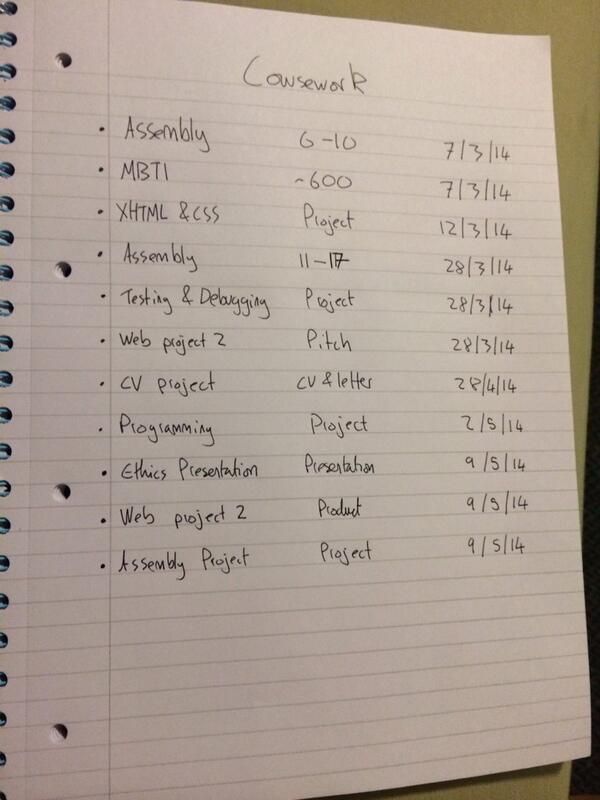 Cousework
• Assembly 6-10 7/3/14
• MBTI ~600 7/3/14
• XHTML & CSS Project 12/3/14
• Assembly 11-17 28/3/14
• Testing & Debugging Project 28/3/14
• Web project 2 Pitch 28/3/14
• CV project CV & letter 28/4/14
• Programming Project 2/5/14
• Ethics Presentation Presentation 9/5/14
• Web project 2 Product 9/5/14
• Assembly Project Project 9/5/14